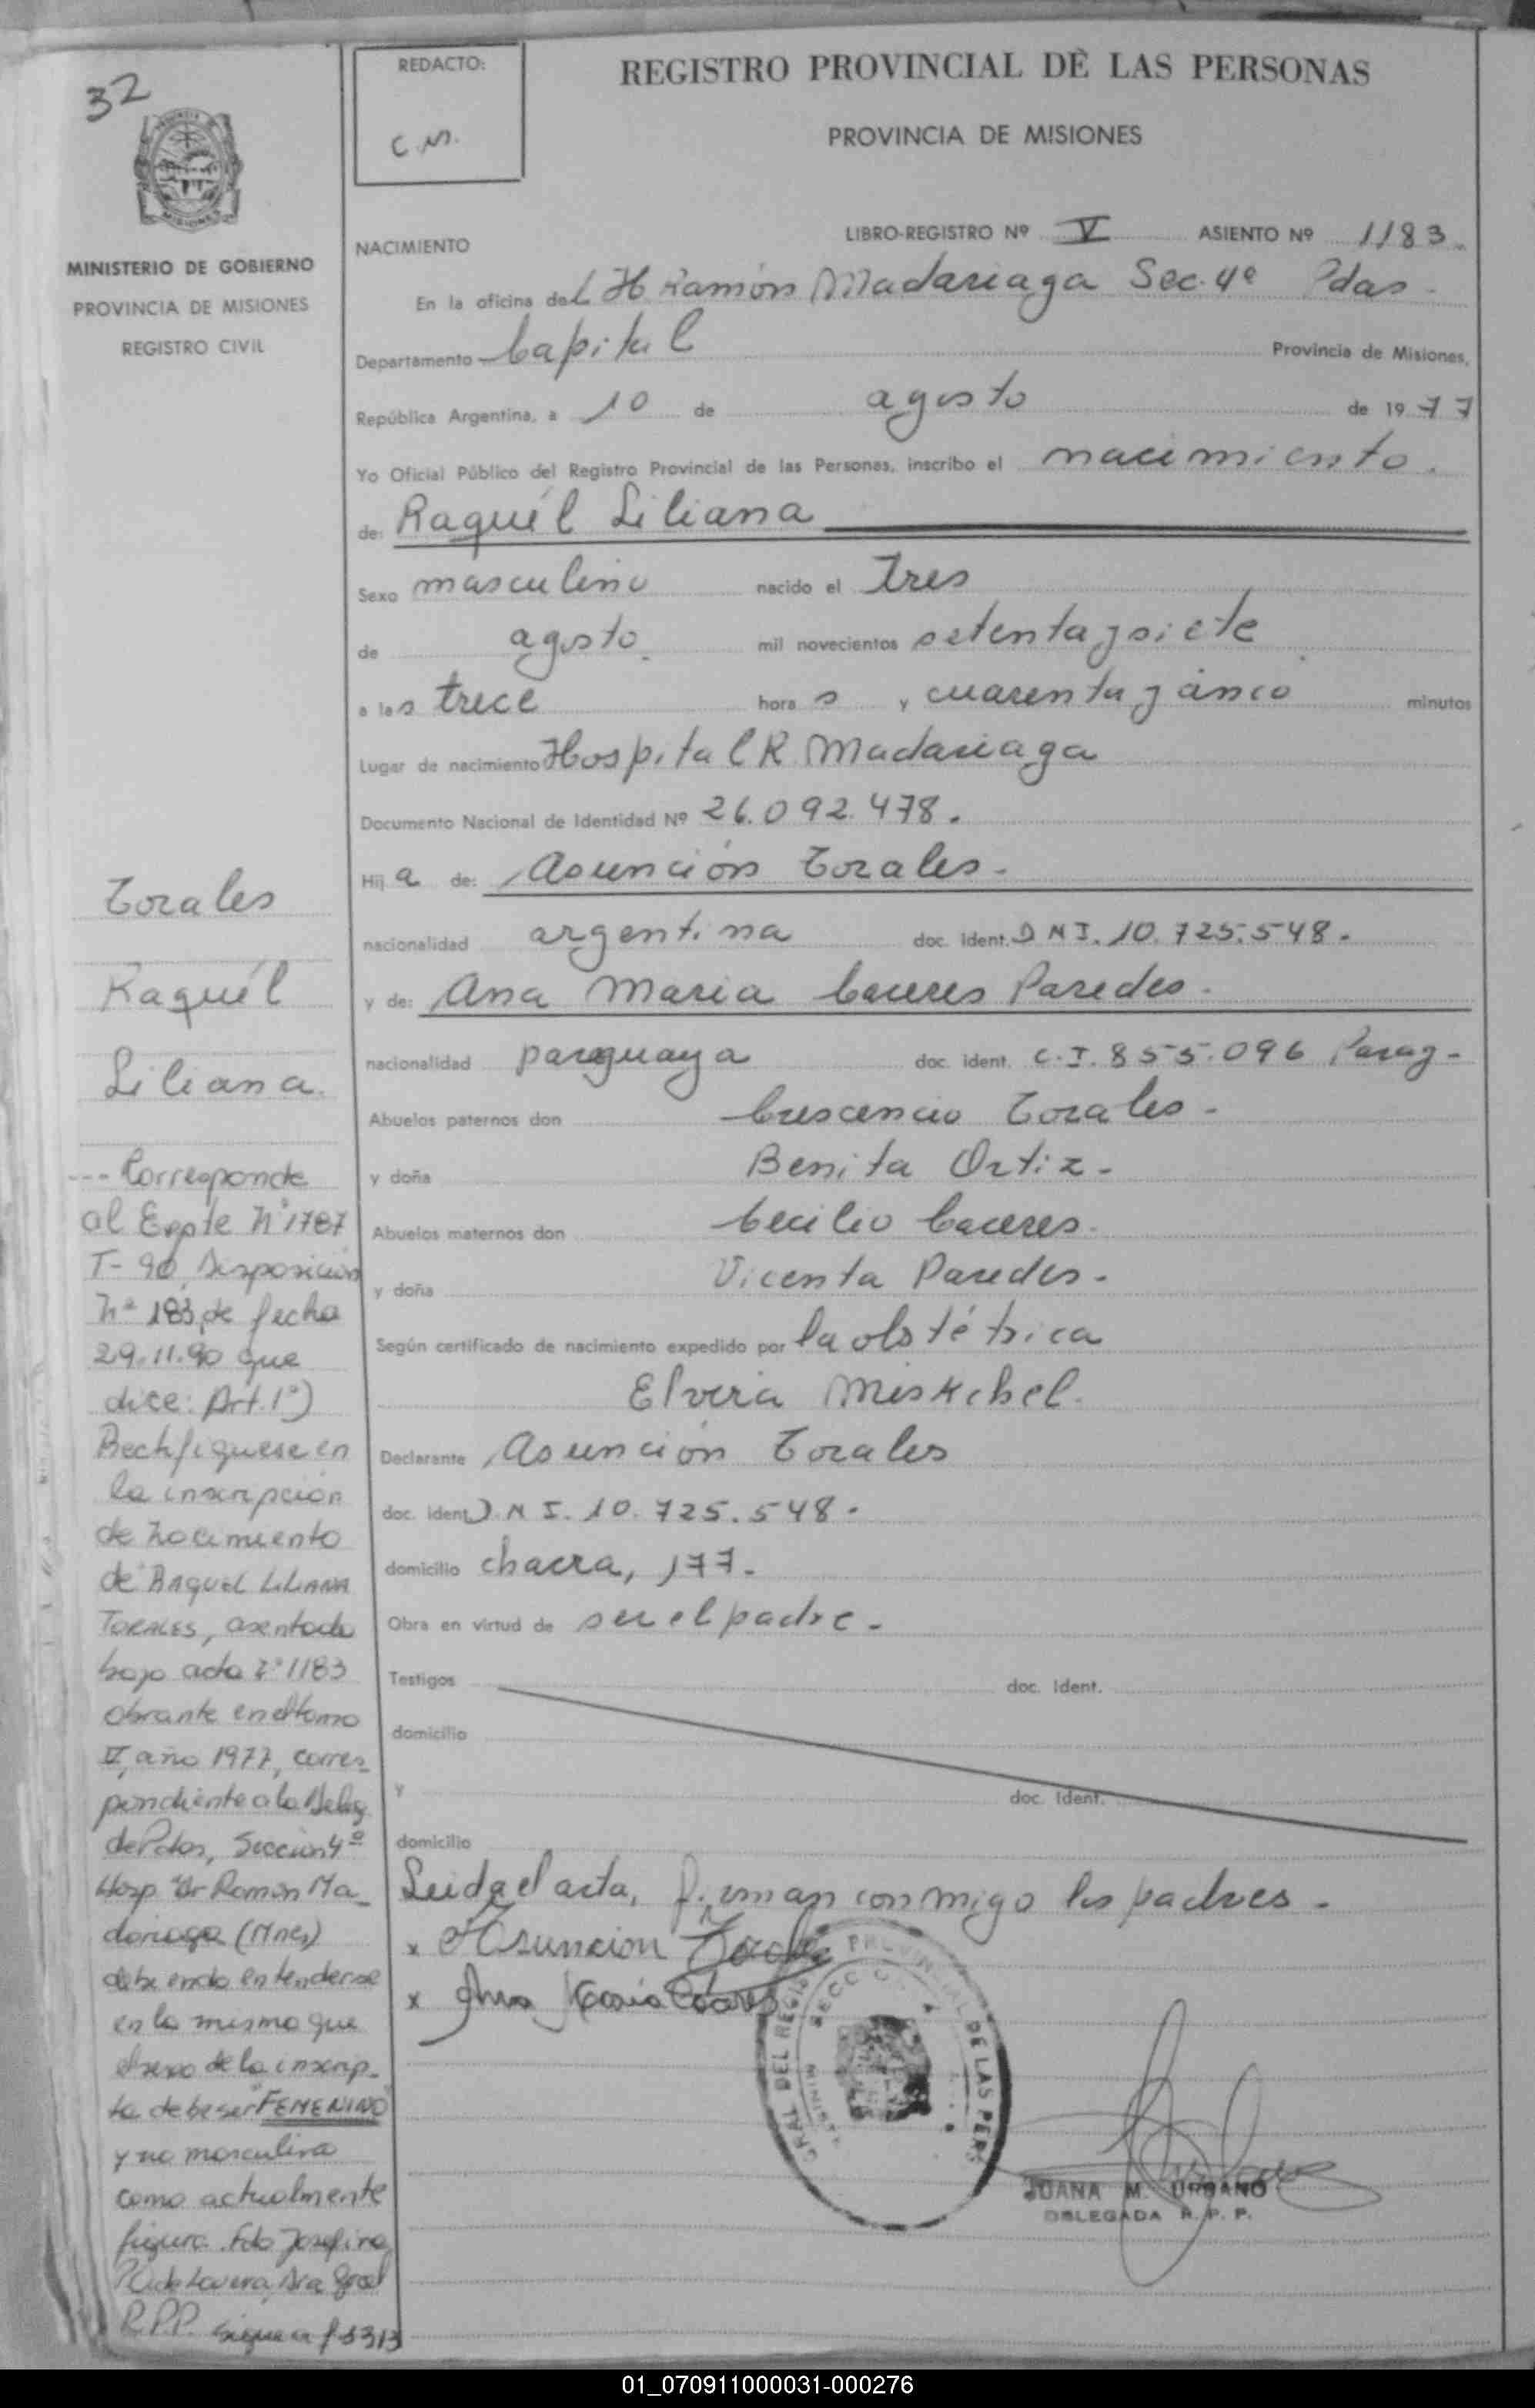 32
REDACTO:
C.M.
REGISTRO PROVINCIAL DE LAS PERSONAS
PROVINCIA DE MISIONES
MINISTERIO DE GOBIERNO
PROVINCIA DE MISIONES
REGISTRO CIVIL
LIBRO-REGISTRO Nº V ASIENTO Nº 1183
NACIMIENTO
En la oficina del H Ramón Madariaga Sec. 4ª Pdas
Departamento Capital Provincia de Misiones,
República Argentina, a 10 de agosto de 1977
Yo Oficial Público del Registro Provincial de las Personas, inscribo el nacimiento.
de: Raquél Liliana
Sexo masculino nacido el Tres
de agosto mil novecientos setenta y siete
a las trece horas y cuarenta y cinco minutos
Lugar de nacimiento Hospital R. Madariaga
Documento Nacional de Identidad Nº 26.092.478.
Hija de: Asunción Torales.
nacionalidad argentina doc. ident. DNI. 10.725.548.
y de: Ana Maria Caceres Paredes.
nacionalidad paraguaya doc. ident. C.I. 855.096 Parag-
Abuelos paternos don Crescencio Torales.
y doña Benita Ortiz.
Abuelos maternos don Cecilio Caceres.
y doña Vicenta Paredes.
Según certificado de nacimiento expedido por la obstétrica
Elvira Miskchel.
Declarante Asunción Torales
doc. ident D.N I. 10.725.548.
domicilio chacra, 177.
Obra en virtud de ser el padre.
Testigos doc. Ident.
domicilio
y doc. Ident.
domicilio
Leida el acta, firman conmigo los padres.
x Asuncion Torales
x Ana Maria Caceres
JUANA M. URBANO
DELEGADA R. P. P.
Torales
Raquél
Liliana.
--- Corresponde
al Expte Nº 1787
T-90, Disposición
Nº 183, de fecha
29.11.90 que
dice: Art. 1º)
Rectifiquese en
la inscripción
de nacimiento
de RAQUEL LILIANA
TORALES, asentada
bajo acta Nº 1183
obrante en el tomo
V, año 1977, corres-
pondiente a la Deleg.
de Pdas, Sección 4º
Hosp. "Dr Ramón Ma-
dariaga (Mnes)
debiendo entenderse
en la misma que
el sexo de la inscrip-
ta debe ser "FEMENINO"
y no masculino
como actualmente
figura. Fdo Josefina
R.P.P. sigue a f
01_070911000031-000276